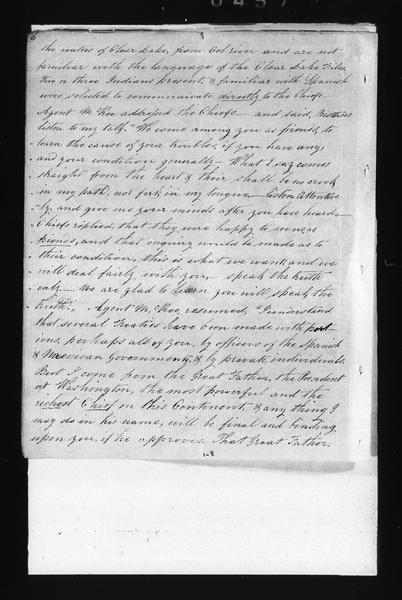 0457
6
the waters of Clear Lake, from Eel river and are not
familiar with the language of the Clear Lake Tribes
Two or three Indians present, & familiar with Spanish
were selected to communicate directly to the Chiefs
Agent McKee addressed the Chiefs and said, Brothers
listen to my talk. "We come among you as friends, to
learn the cause of your troubles, if you have any,
and your condition generally - What I say comes
straight from the heart & their shall be no crook
in my path, nor fork in my tongue, - listen attentive
-ly, and give me your minds after you have heard, -
Chiefs replied, that they were happy to see us as
friends, and that enquiry would be made as to
their condition, this is what we want, and we
will deal fairly with you, - speak the truth
only - We are glad to learn you will speak the
truth". Agent McKee, resumed, "I understand
that several Treaties have been made with
ions, perhaps all of you, by officers of the Spanish
& Mexican Governments, & by private individuals.
But I come from the Great Father, the President
at Washington, the most powerful and the
richest Chief on this Continent, & any thing I
may do in his name, will be final and binding
upon you, if he approves. That Great Father,
1-8